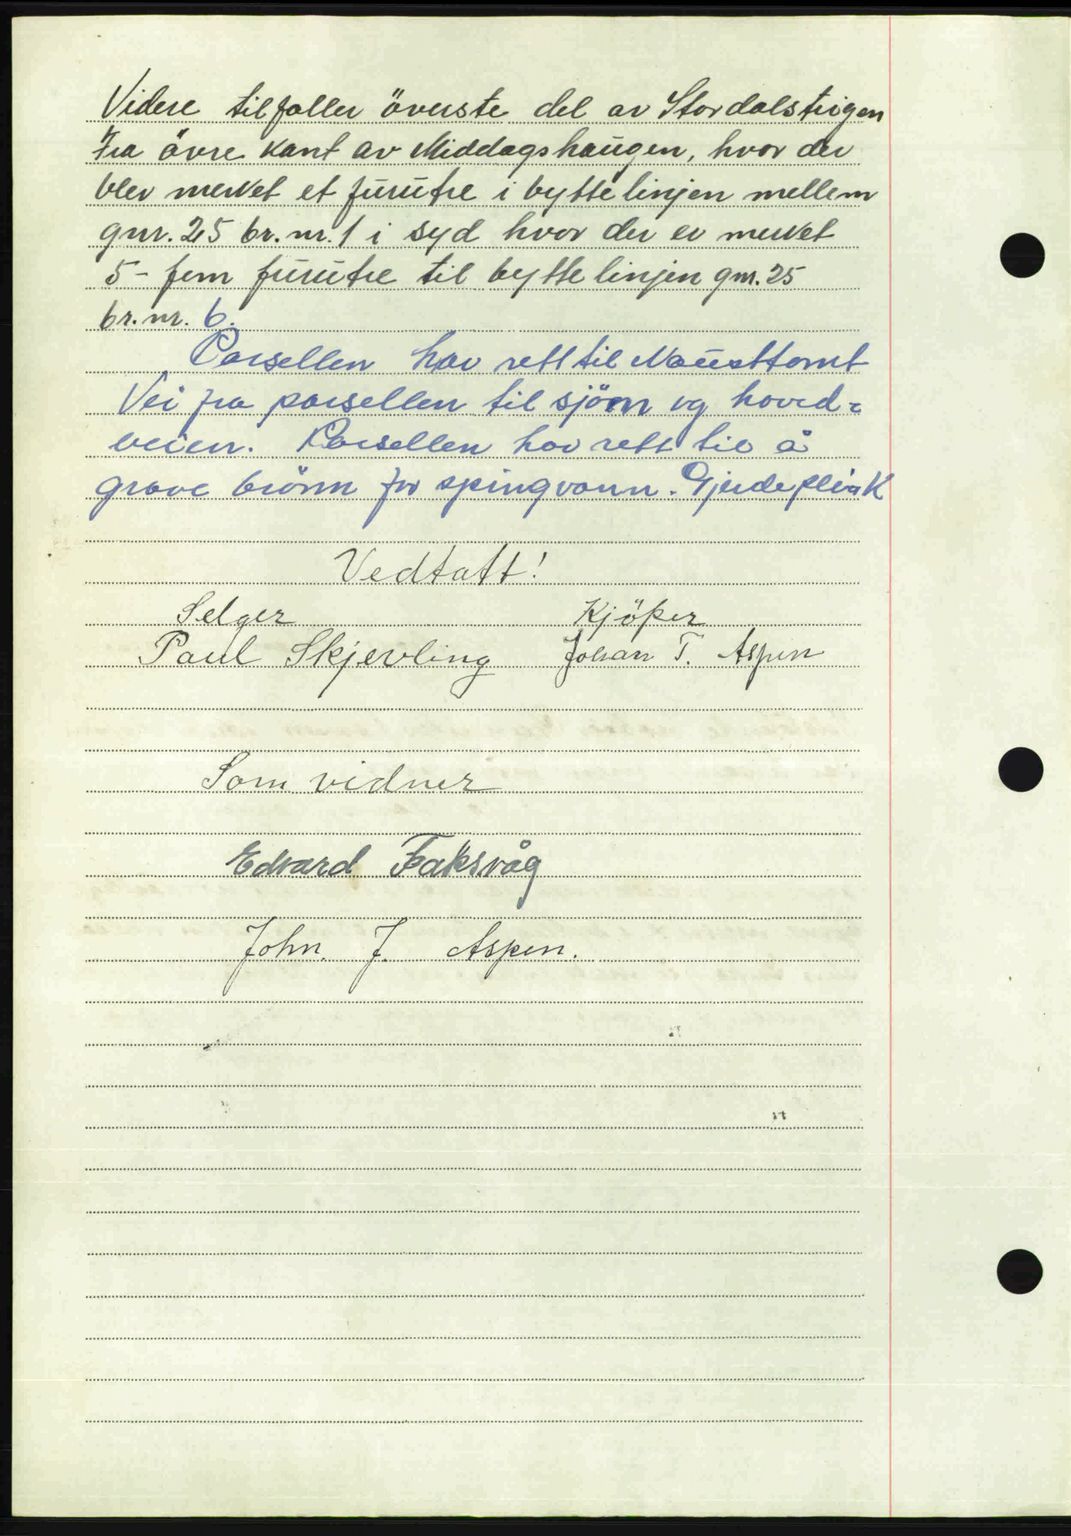 Videre tilfaller överste del av Stordalsteigen
Fra övre kant av Middagshaugen, hvor der
blev merket et furutre i byttelinjen mellem
gnr. 25 br. nr. 1 i syd hvor der er merket
5 - fem furutre til byttelinjen gnr. 25
br. nr. 6.
Parsellen har rett til Nausttomt
Vei fra parsellen til sjöen og hoved-
veien. Parsellen har rett til å
grave brönn for springvann. Gjerdeplikt
Vedtatt!
Selger Kjöper
Paul Skjevling Johan T. Aspen
Som vidner
Edvard Faksvåg
John. J. Aspen.